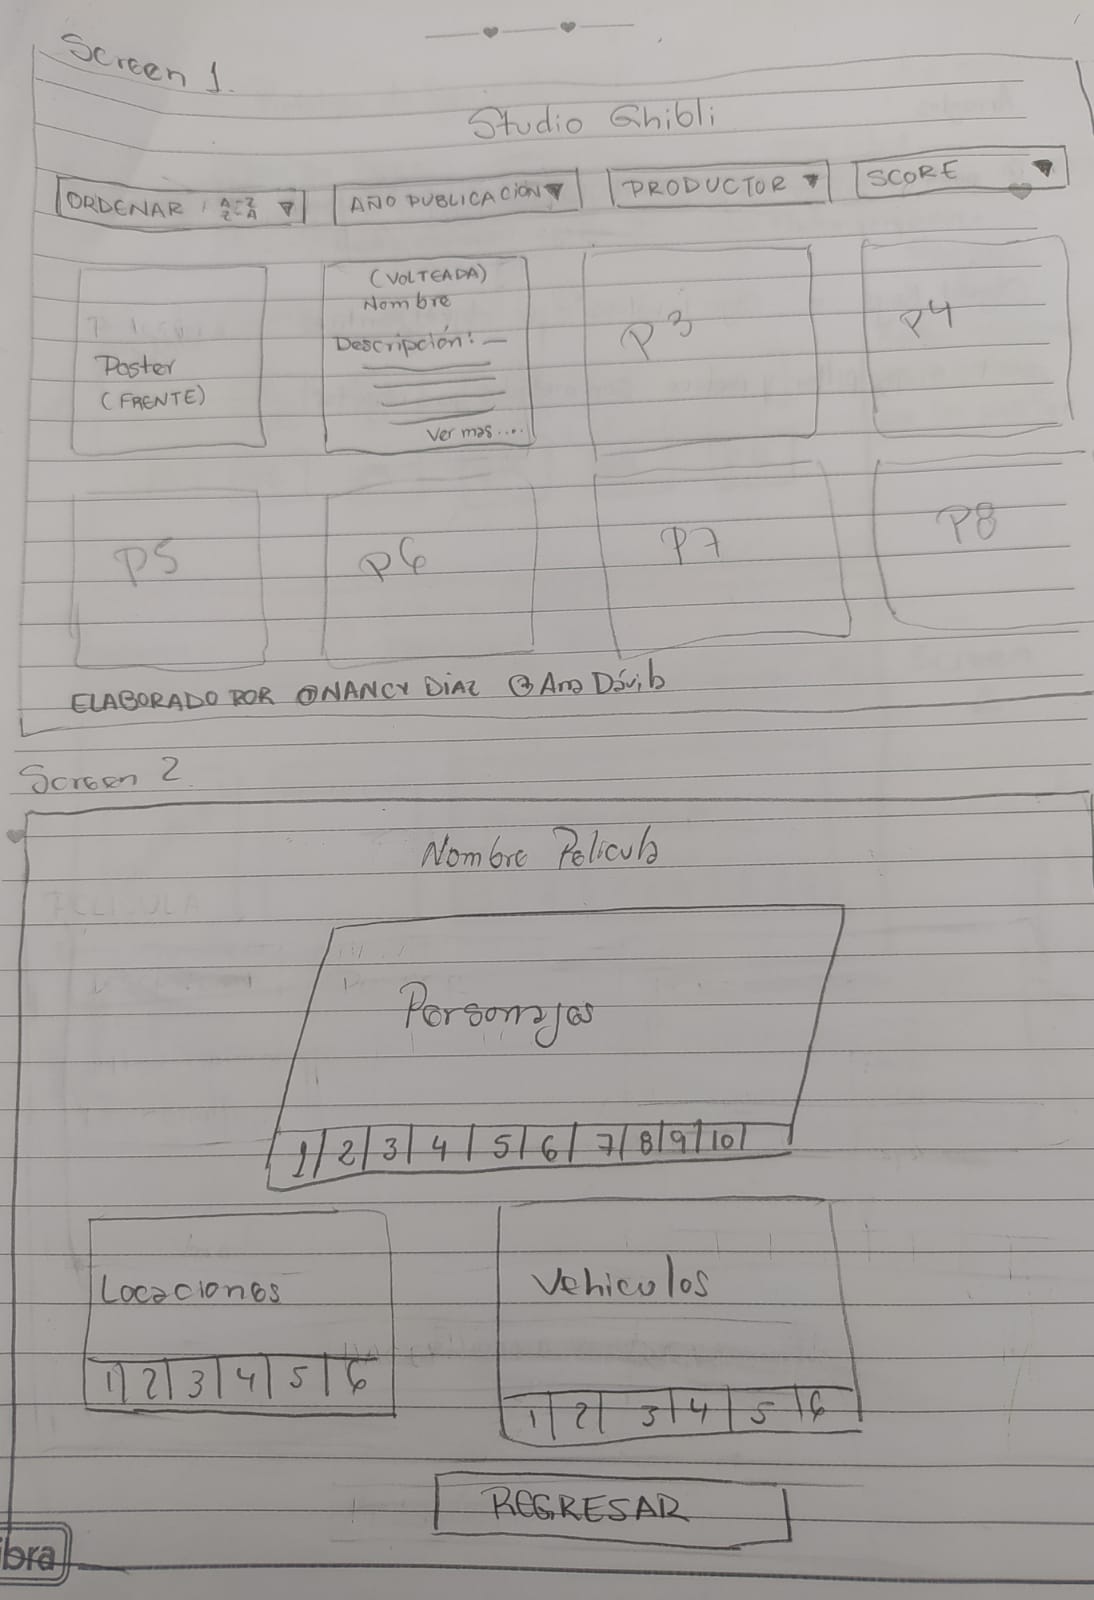 Screen 1.
Studio Ghibli
ORDENAR : A-Z Z-A ▼ AÑO PUBLICACIÓN ▼ PRODUCTOR ▼ SCORE ▼
Poster
(FRENTE)
(VOLTEADA)
Nombre
Descripción: —
Ver mas....
P3
P4
P5
P6
P7
P8
ELABORADO POR @NANCY DÍAZ @Ana Dávila
Screen 2
Nombre Pelicula
Personajes
1 2 3 4 5 6 7 8 9 10
Locaciones
1 2 3 4 5 6
Vehiculos
1 2 3 4 5 6
REGRESAR
ibra